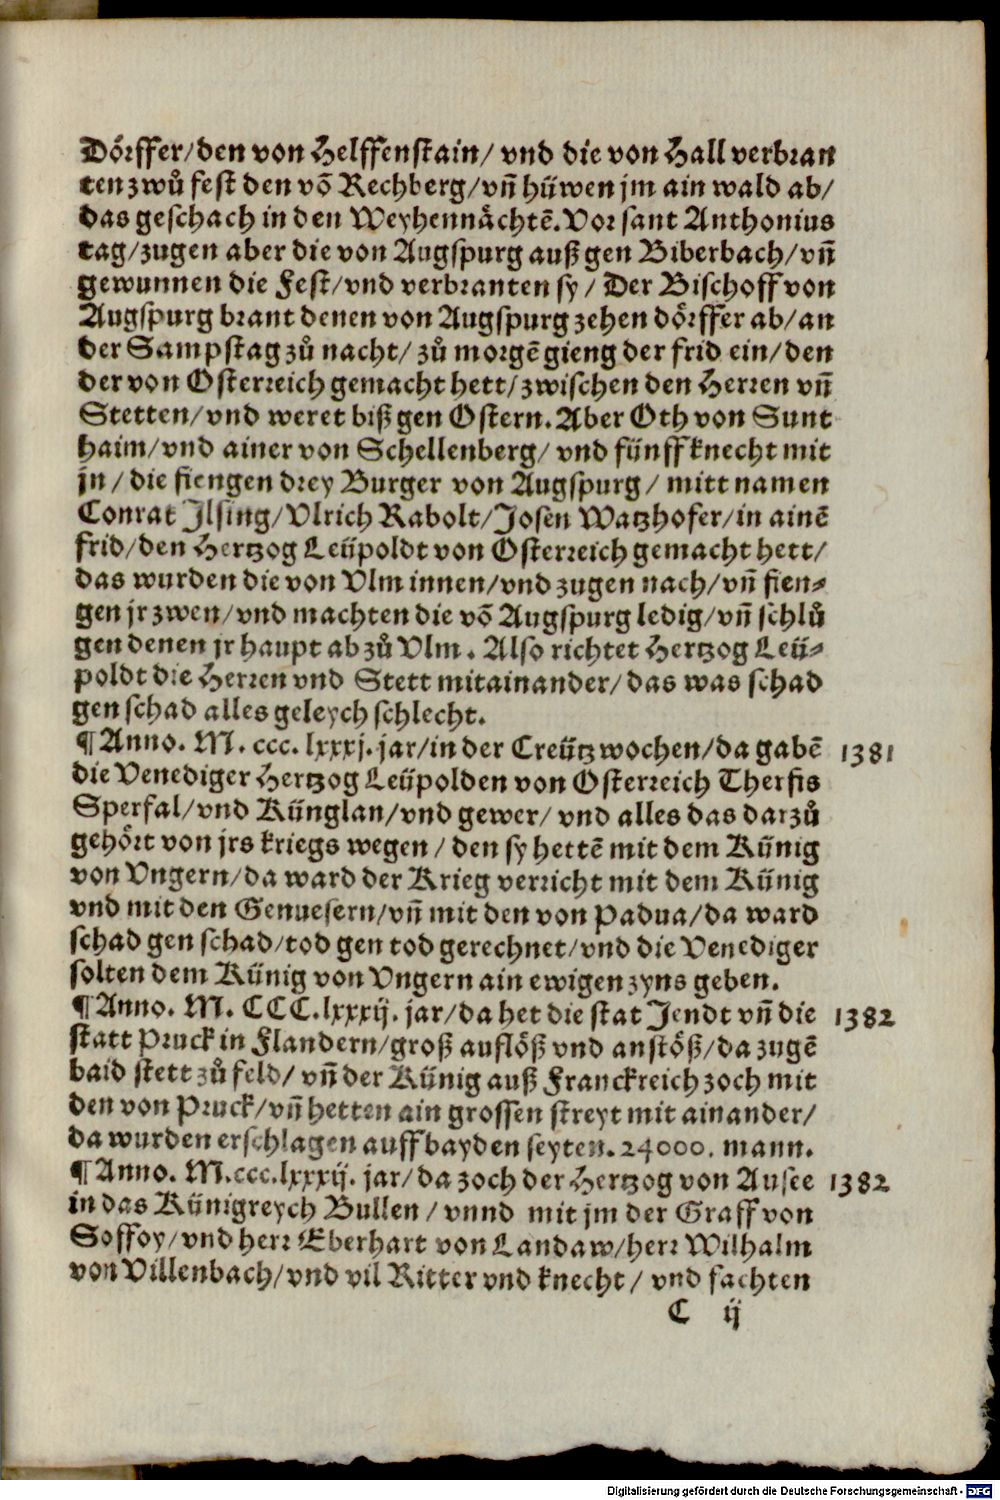 Dörffer/den von Helffenstain/ vnd die von Hall verbran
ten zwů fest den võ Rechberg/vñ hüwen jm ain wald ab/
das geschach in den Weyhennächtẽ. Vor sant Anthonius
tag/zugen aber die von Augspurg auß gen Biberbach/vñ
gewunnen die Fest/vnd verbranten sy/ Der Bischoff von
Augspurg brant denen von Augspurg zehen dörffer ab/an
der Sampstag zů nacht/ zů morgẽ gieng der frid ein/den
der von Osterreich gemacht hett/zwischen den Herren vñ
Stetten/vnd weret biß gen Ostern. Aber Oth von Sunt
haim/vnd ainer von Schellenberg/ vnd fünff knecht mit
jn/ die fiengen drey Burger von Augspurg/ mitt namen
Conrat Jlsing/Vlrich Rabolt/Josen Watzhofer/in ainẽ
frid/den Hertzog Leüpoldt von Osterreich gemacht hett/
das wurden die von Vlm innen/vnd zugen nach/vñ fien⸗
gen jr zwen/vnd machten die võ Augspurg ledig/vñ schlů
gen denen jr haupt ab zů Vlm. Also richtet Hertzog Leü⸗
poldt die Herren vnd Stett mitainander/das was schad
gen schad alles geleych schlecht.
¶Anno. M. ccc. lxxxj. jar/in der Creützwochen/da gabẽ 1381
die Venediger Hertzog Leüpolden von Osterreich Therfis
Sperfal/vnd Künglan/vnd gewer/ vnd alles das darzů
gehört von jrs kriegs wegen/ den sy hettẽ mit dem Künig
von Vngern/da ward der Krieg verricht mit dem Künig
vnd mit den Genuesern/vñ mit den von Padua/da ward
schad gen schad/tod gen tod gerechnet/vnd die Venediger
solten dem Künig von Vngern ain ewigen zyns geben.
¶Anno. M. CCC.lxxxij. jar/da het die stat Jendt vñ die 1382
statt Pruck in Flandern/groß auflöß vnd anstöß/da zugẽ
baid stett zů feld/ vñ der Künig auß Franckreich zoch mit
den von Pruck/vñ hetten ain grossen streyt mit ainander/
da wurden erschlagen auff bayden seyten. 24000. mann.
¶Anno. M.ccc.lxxxij. jar/da zoch der Hertzog von Ausee 1382
in das Künigreych Bullen/ vnnd mit jm der Graff von
Soffoy/vnd herr Eberhart von Landaw/herr Wilhalm
von Villenbach/vnd vil Ritter vnd knecht/ vnd fachten
C ij
Digitalisierung gefördert durch die Deutsche Forschungsgemeinschaft - DFG